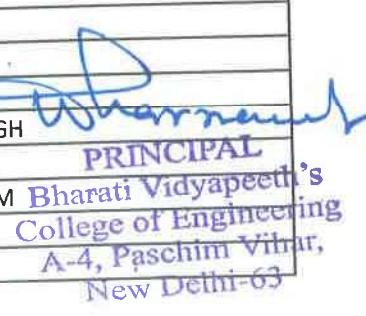 GH
PRINCIPAL
M Bharati Vidyapeeth's
College of Engineering
A-4, Paschim Vihar,
New Delhi-63